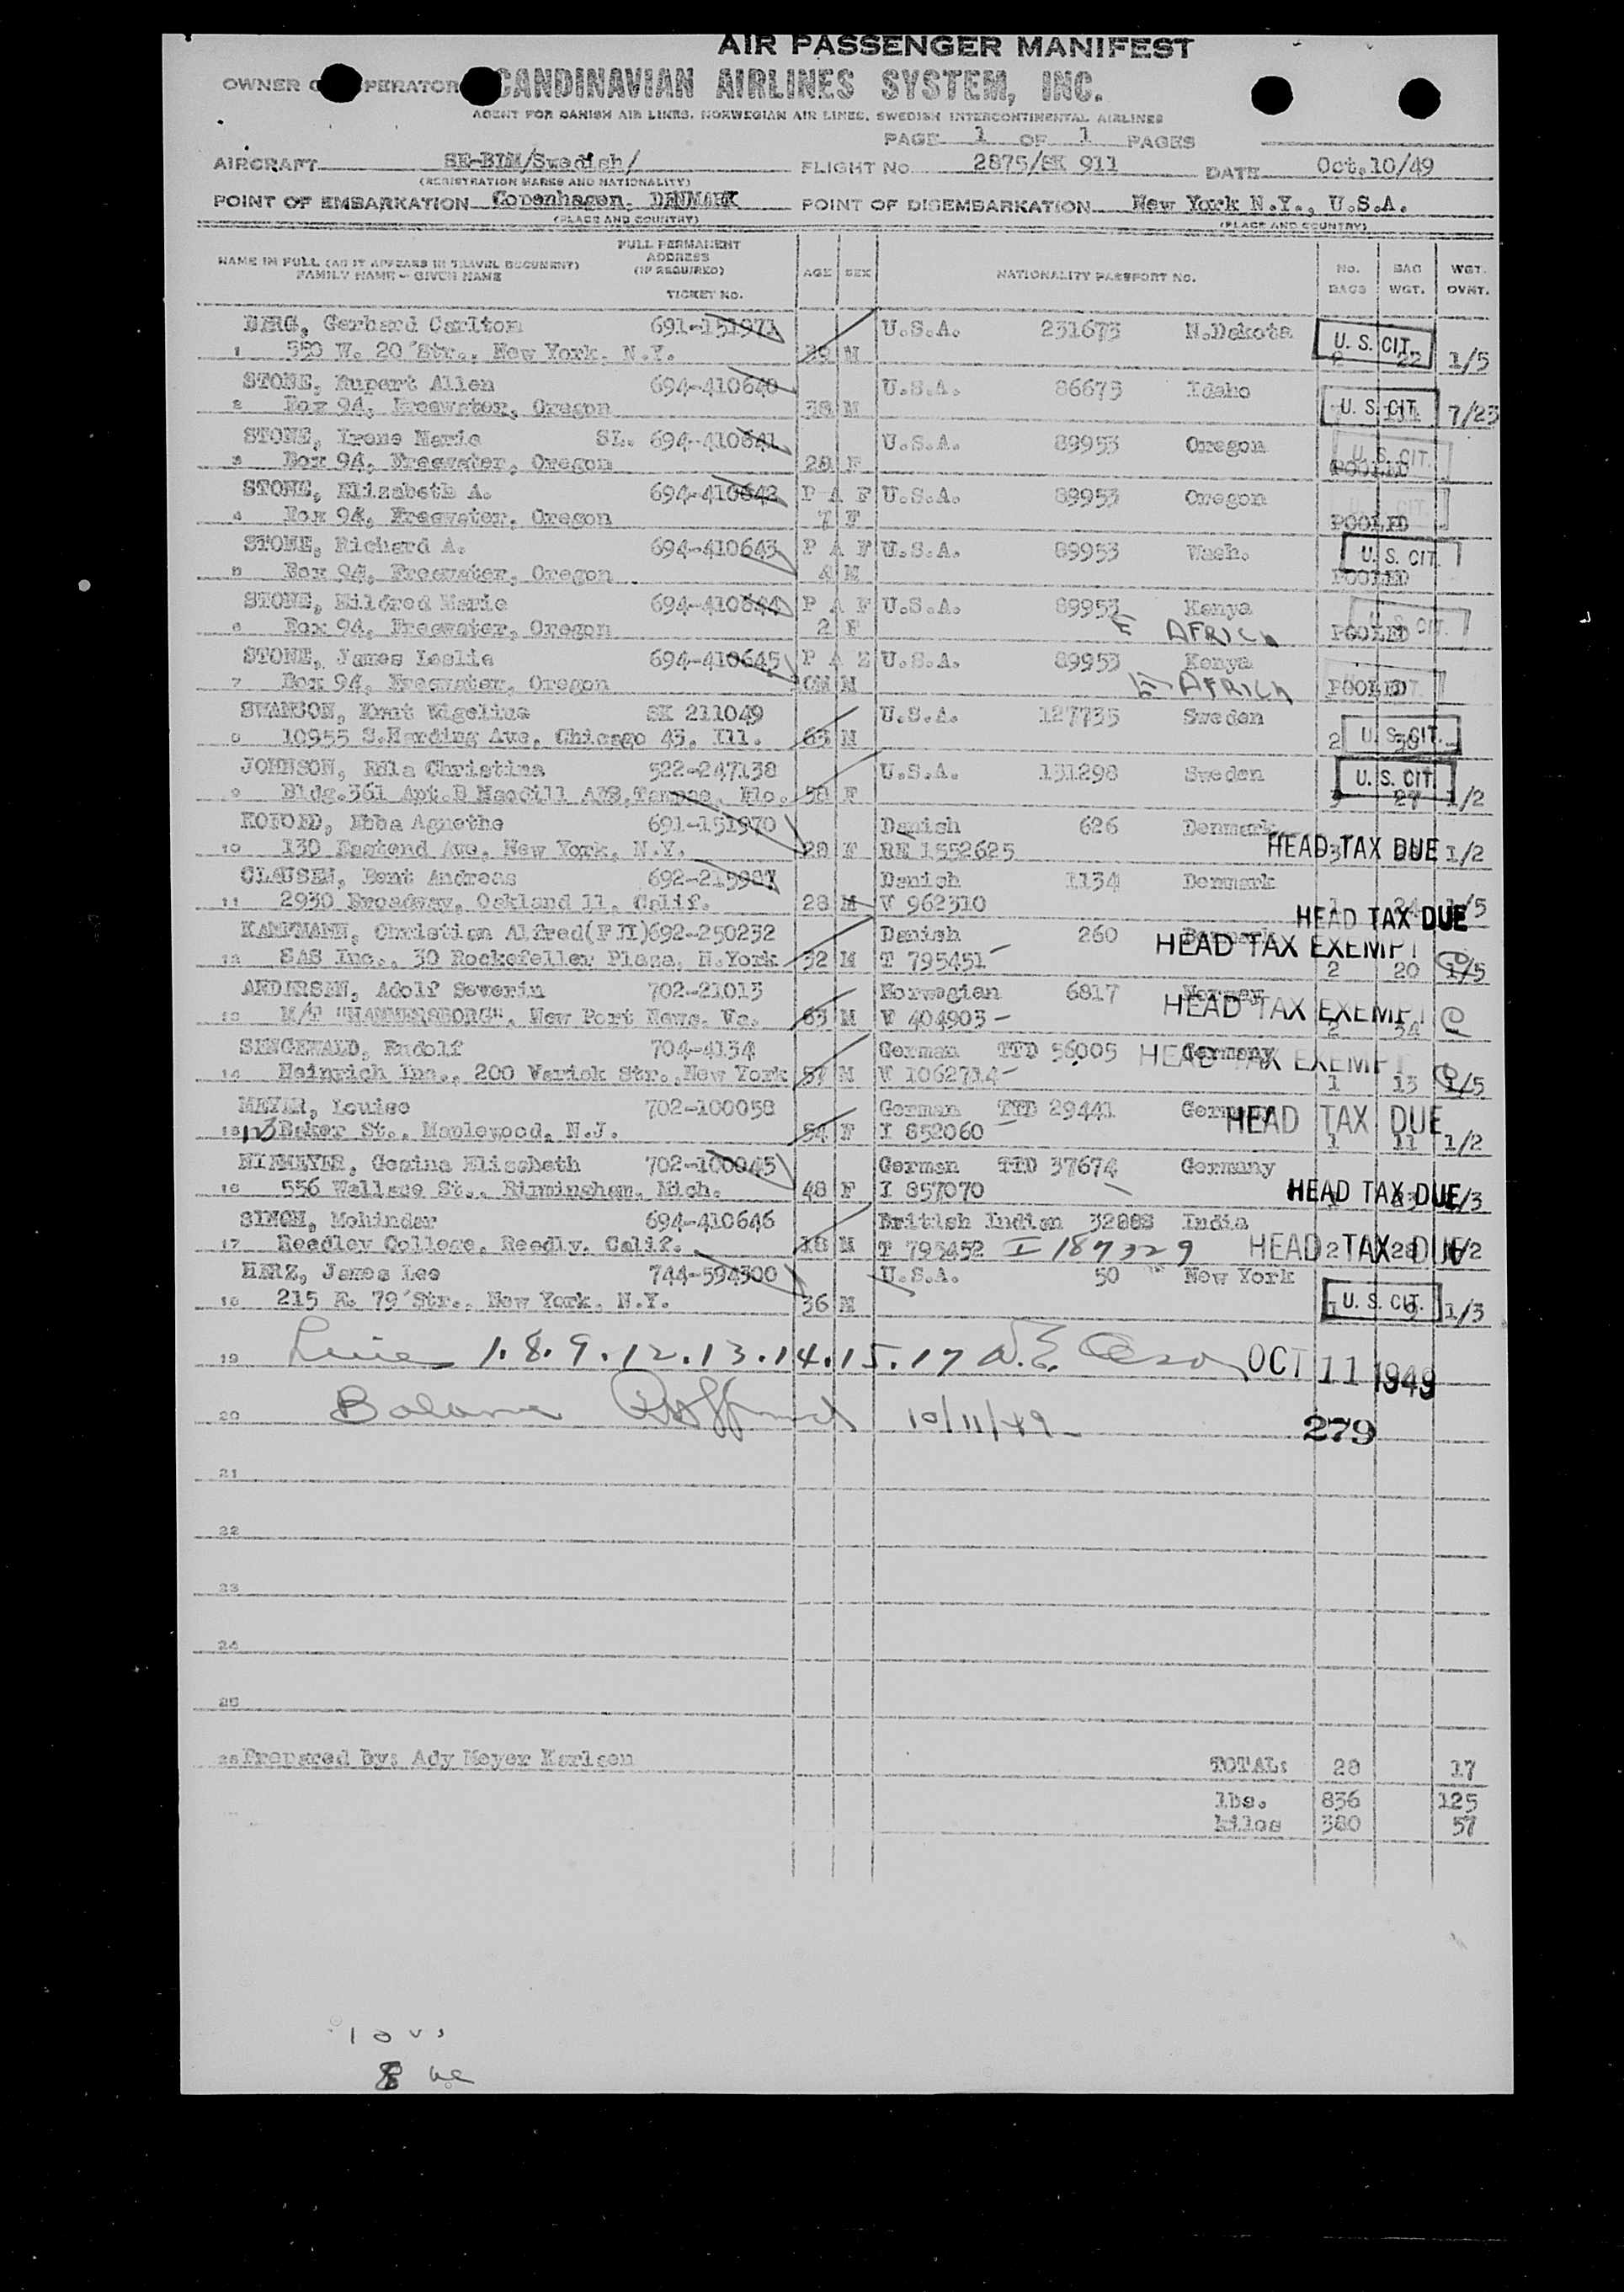 AIR PASSENGER MANIFEST
OWNER O PERATOR CANDINAVIAN AIRLINES SYSTEM, INC.
AGENT FOR DANISH AIR LINES, NORWEGIAN AIR LINES, SWEDISH INTERCONTINENTAL AIRLINES
PAGE 1 OF 1 PAGES
AIRCRAFT SE-BIM/Swedish/ FLIGHT NO. 2875/SK 911 DATE Oct.10/49
(REGISTRATION MARKS AND NATIONALITY)
POINT OF EMBARKATION Copenhagen, DENMARK POINT OF DISEMBARKATION New York N.Y., U.S.A.
(PLACE AND COUNTRY) (PLACE AND COUNTRY)
FULL PERMANENT
NAME IN FULL (AS IT APPEARS IN TRAVEL DOCUMENT) ADDRESS
FAMILY NAME - GIVEN NAME (IF REQUIRED) AGE SEX NATIONALITY PASSPORT NO. NO. BAG WGT.
TICKET NO. BAGS WGT. OVHT.
BERG, Gerhard Carlton 691-151971 U.S.A. 231673 N.Dakota U. S. CIT.
1 550 W. 20 Str., New York, N.Y. 39 M 2 22 1/5
STONE, Rupert Allen 694-410640 U.S.A. 86673 Idaho
2 Box 94, Freewater, Oregon 38 M U. S. CIT. 7/23
STONE, Irene Marie SL. 694-410641 U.S.A. 89953 Oregon U. S. CIT.
3 Box 94, Freewater, Oregon 28 F POOLED
STONE, Elizabeth A. 694-410642 P A F U.S.A. 89953 Oregon
4 Box 94, Freewater, Oregon 7 F POOLED
STONE, Richard A. 694-410643 P A F U.S.A. 89953 Wash. U. S. CIT.
5 Box 94, Freewater, Oregon 4 M POOLED
STONE, Mildred Marie 694-410644 P A F U.S.A. 89953 Kenya
6 Box 94, Freewater, Oregon 2 F E AFRICA POOLED U. S. CIT.
STONE, James Leslie 694-410645 P A Z U.S.A. 89953 Kenya
7 Box 94, Freewater, Oregon M E AFRICA POOLED
SWANSON, Knut Wigelius SK 211049 U.S.A. 127735 Sweden
8 10955 S.Harding Ave, Chicago 43, Ill. 63 M 2 U. S. CIT.
JOHNSON, Edla Christina 522-247138 U.S.A. 131298 Sweden U. S. CIT.
9 Bldg.361 Apt.D Macdill AFB,Tampa, Flo. 58 F 3 27 1/2
KOFOED, Ebba Agnethe 691-151970 Danish 626 Denmark
10 130 Eastend Ave, New York, N.Y. 28 F RE 1552625 HEAD TAX DUE 1/2
CLAUSEN, Bent Andreas 692-215987 Danish 1134 Denmark
11 2930 Broadway, Oakland 11, Calif. 28 M V 962310 1 24 1/5
HEAD TAX DUE
KAUFMANN, Christian Alfred(FII)692-250232 Danish 260 Denmark HEAD TAX EXEMPT
12 SAS Inc., 30 Rockefeller Plaza, N.York 32 M T 795451 2 20 1/5
ANDERSEN, Adolf Severin 702-21013 Norwegian 6817 Norway HEAD TAX EXEMPT
13 M/T "HAMMERSBORG", New Port News, Va. 63 M V 404903 2 34
SINGEWALD, Rudolf 704-4134 German TTD 56005 Germany HEAD TAX EXEMPT
14 Heinrich Inc., 200 Varick Str.,New York 57 M V 1062714 1 13 1/5
MEYER, Louise 702-100058 German TTD 29441 Germany HEAD TAX DUE
15 113 Baker St., Maplewood, N.J. 54 F I 852060 1 11 1/2
NIEMEYER, Gesina Elisabeth 702-100045 German TTD 37674 Germany
16 556 Wallace St., Birmingham, Mich. 48 F I 857070 HEAD TAX DUE 1/3
SINGH, Mohinder 694-410646 British Indian 32888 India
17 Reedley College, Reedly, Calif. 18 M T 795452 I 187329 HEAD TAX DUE 2 28 1/2
HERZ, James Lee 744-594300 U.S.A. 50 New York
18 215 E. 79 Str., New York, N.Y. 36 M 1 U. S. CIT. 9 1/3
19 Line 1.8.9.12.13.14.15.17 OCT 11 1949
20 Balance 10/11/49
279
21
22
23
24
25
26 Prepared by: Ady Meyer Karlsen TOTAL: 28 17
lbs. 836 125
kilos 380 57
8